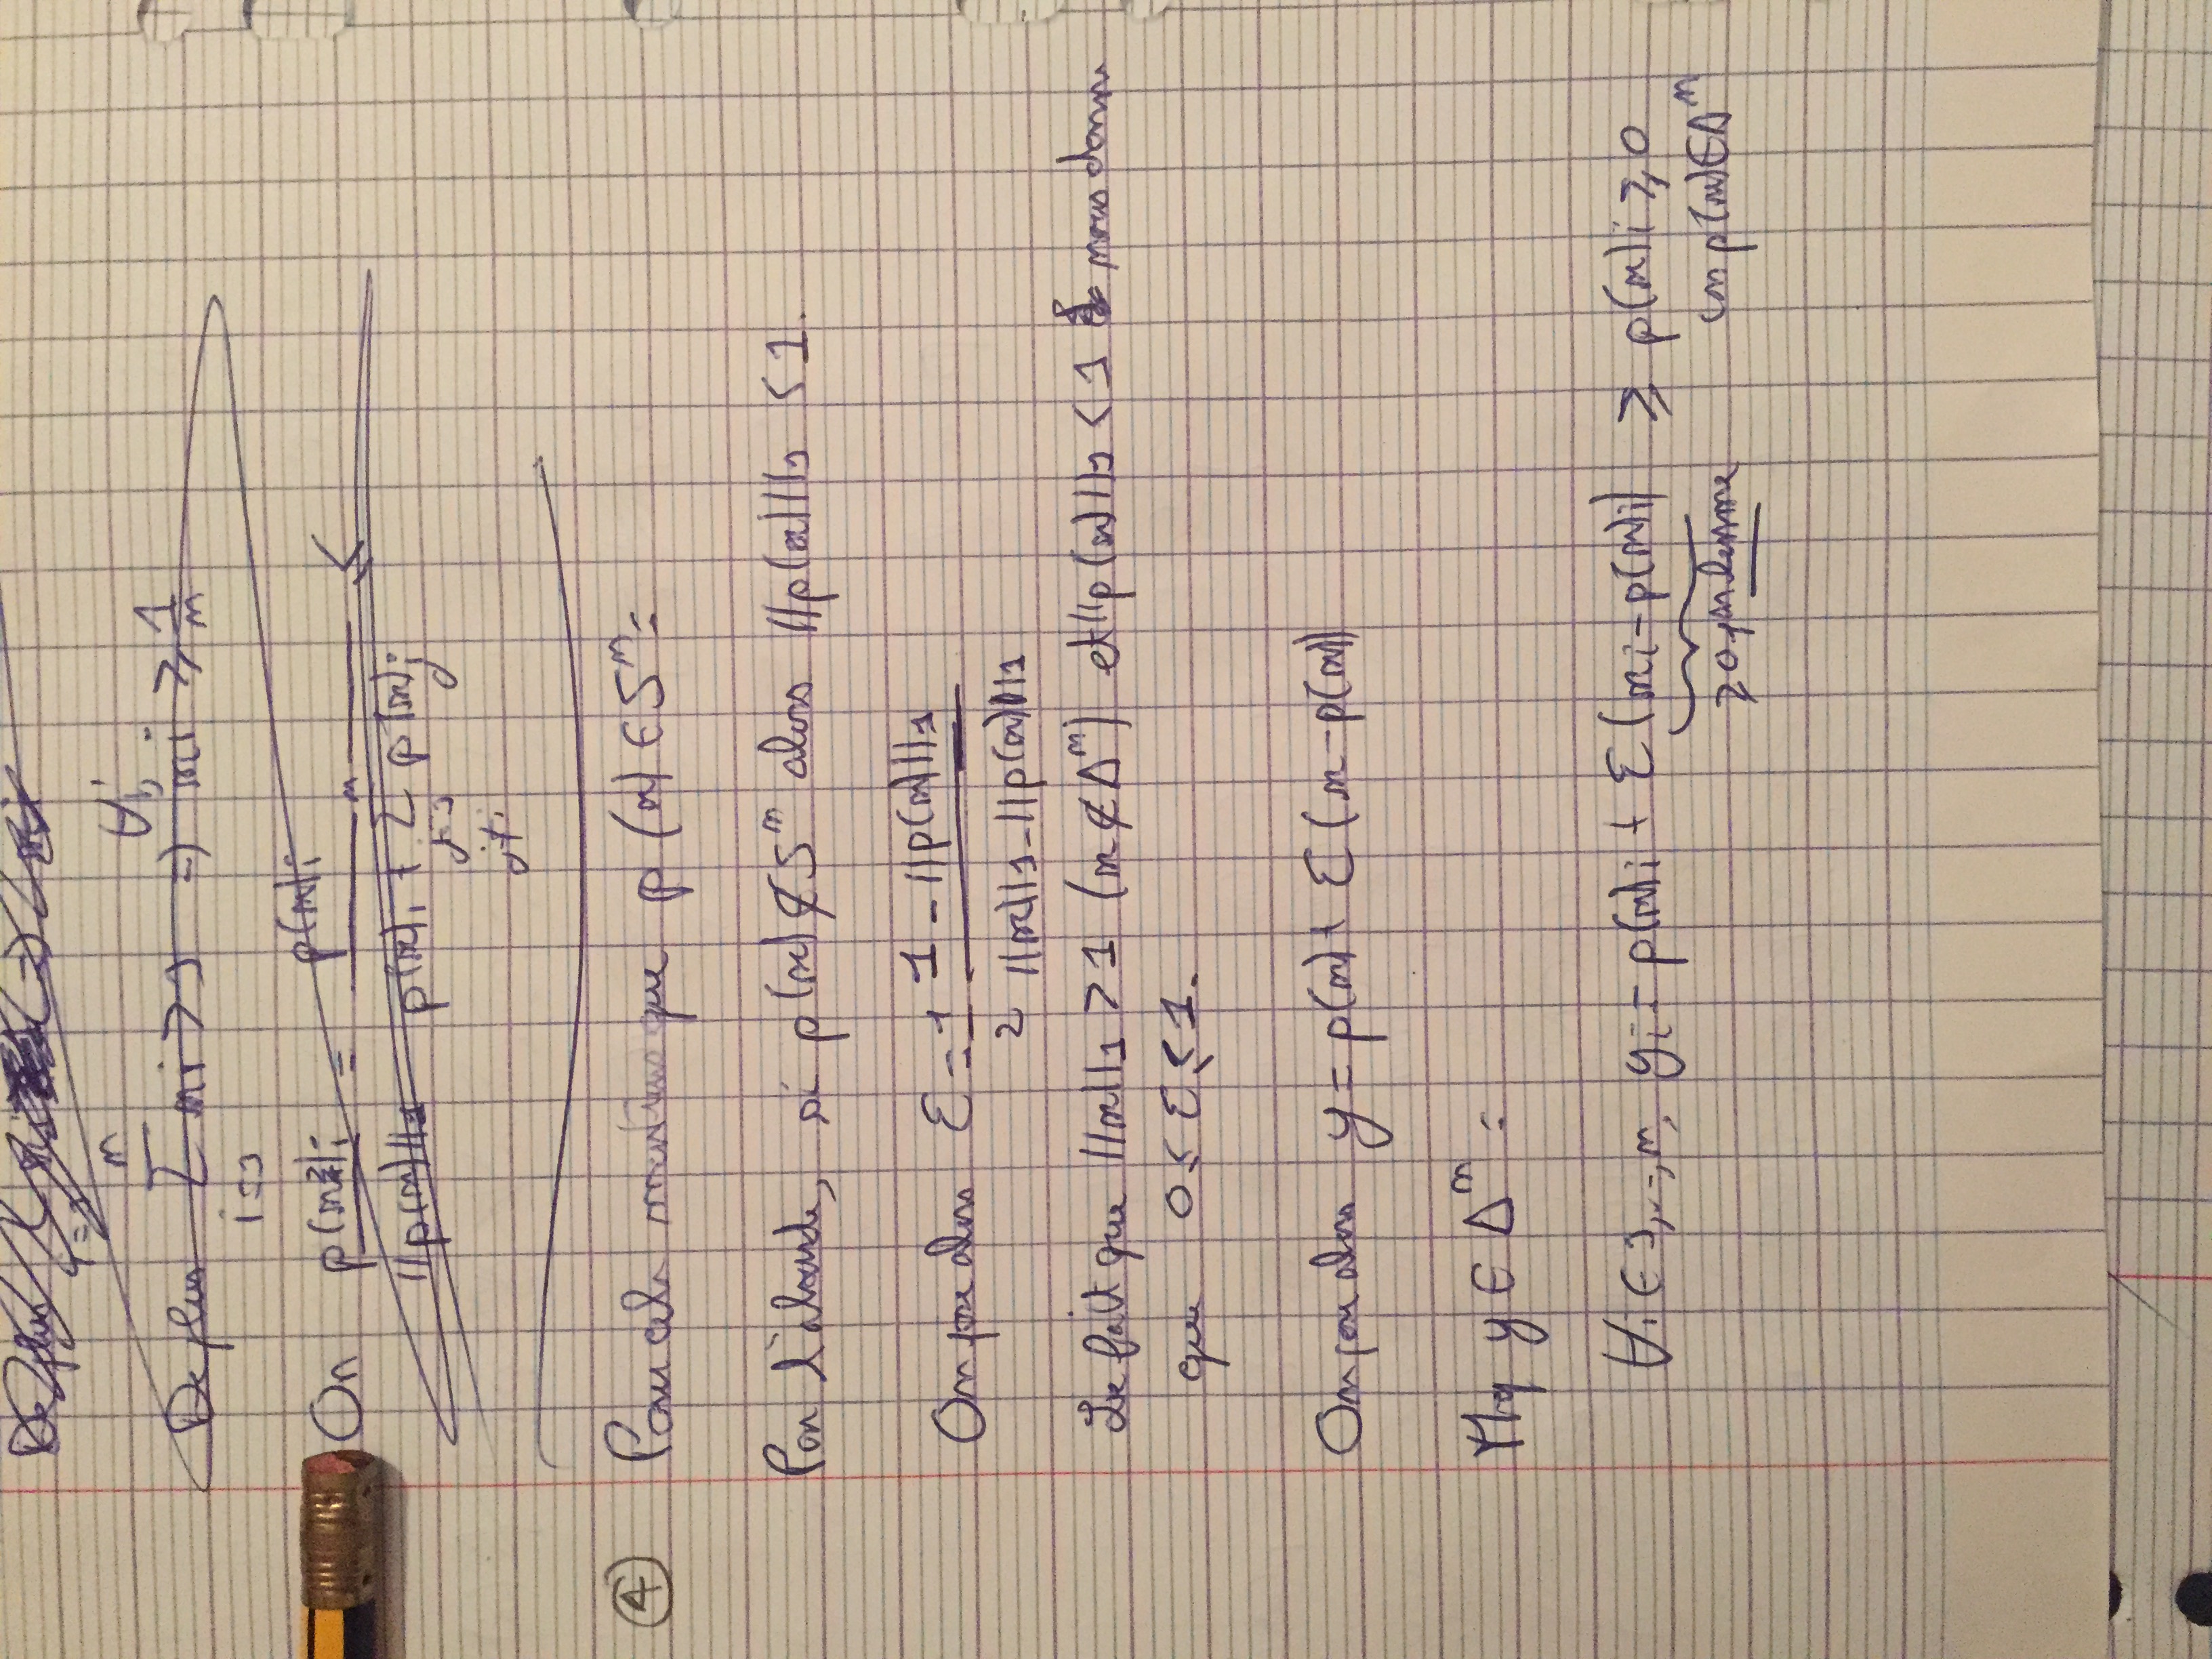 De plus
i=1
n
∀i,
De plus ∑ xi > 1 => xi ⩾ 1/n
i=1
On p(x)i / ||p(x)||1 = p(x)i / (p(x)i + ∑ p(x)j) ⩽
n
j=1
j≠i
④ Pour cela montrons que p(x) ∈ Sⁿ :
Par l'absurde, si p(x) ∉ Sⁿ alors ||p(x)||1 < 1.
On pose alors ε = 1/2 (1 - ||p(x)||1) / (||x||1 - ||p(x)||1)
Le fait que ||x||1 > 1 (x ∉ Δⁿ) et ||p(x)||1 < 1 nous donne
que 0 ⩽ ε ⩽ 1.
On pose alors y = p(x) + ε(x - p(x))
Mq y ∈ Δⁿ :
∀i ∈ 1,..,n, yi = p(x)i + ε(xi - p(x)i) ⩾ p(x)i ⩾ 0
⩾0 par lemme car p(x) ∈ Δⁿ